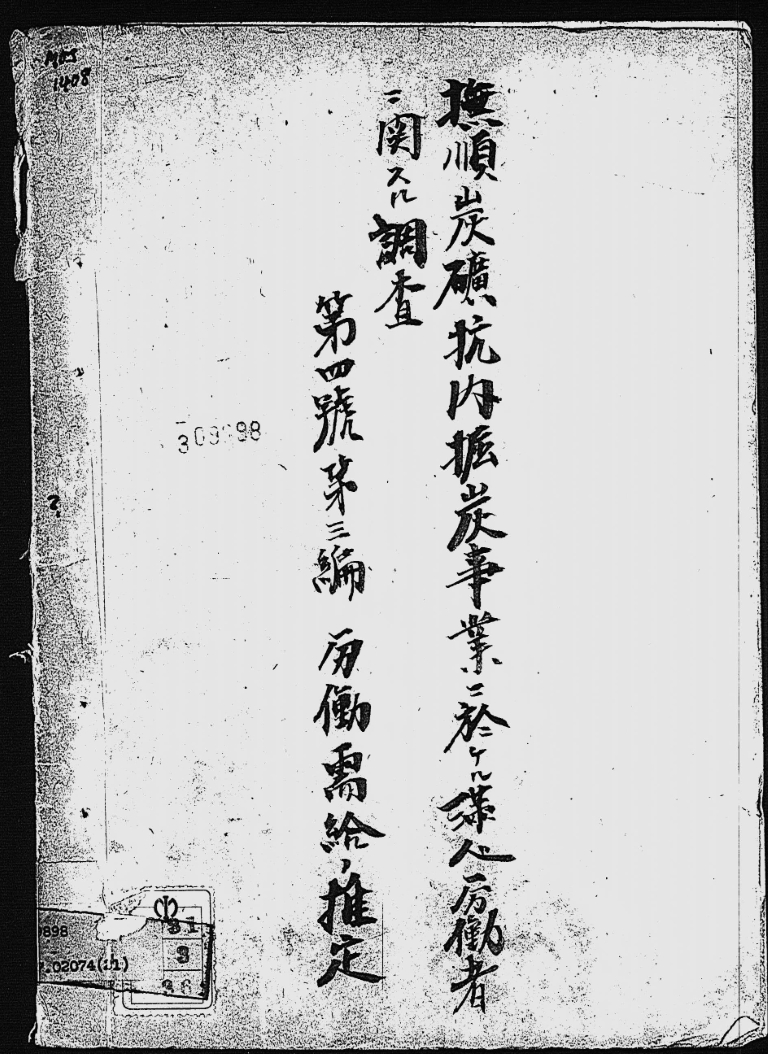 撫順炭礦坑内掘炭事業ニ於ケル満人労働者
ニ関スル調査
第四號第三編 労働需給ノ推定
MOJ
1408
898
.02074(11)
31
3